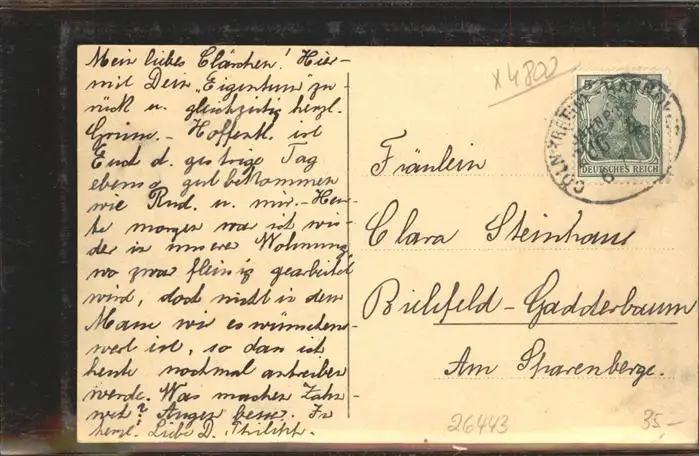 Mein liebes Clärchen! Hier-
mit Dein „Eigentum" zu-
rück u. gleichzeitig herzl.
Grüsse. - Hoffentl. ist
Euch d. gestrige Tag
ebenso gut bekommen
wie Rud. u. mir. - Heu-
te morgen war ich wie-
der in unsere Wohnung
wo zwar fleissig gearbeitet
wird, doch nicht in dem
Masse wie es wünschens-
wert ist, so dass ich
heute nochmal antreiben
werde. Was machen Zahn-
weh? Augen besser. In
herzl. Liebe D. Philipp.
x 4800
DEUTSCHES REICH
CÖLN HANNOVER
Fräulein
Clara Steinhaus
Bielefeld - Gadderbaum
Am Sparenberge.
26443
35,-